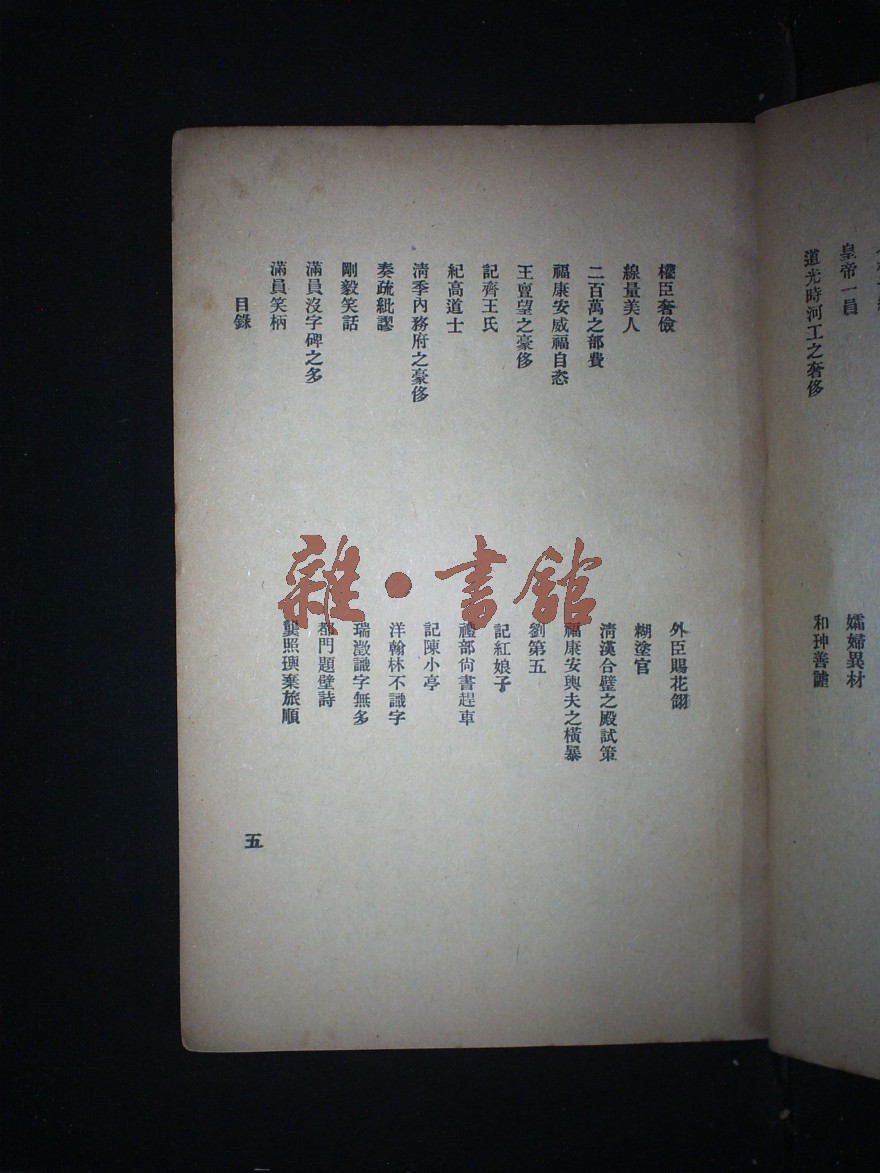 皇帝一員
道光時河工之奢侈
孀婦異材
和珅善謔
權臣奢儉
線量美人
二百萬之部費
福康安威福自恣
王亶望之豪侈
記齊王氏
紀高道士
淸季內務府之豪侈
奏疏紕謬
剛毅笑話
滿員沒字碑之多
滿員笑柄
外臣賜花翎
糊塗官
淸漢合璧之殿試策
福康安輿夫之橫暴
劉第五
記紅娘子
禮部尙書趕車
記陳小亭
洋翰林不識字
瑞澂識字無多
都門題壁詩
龔照璵棄旅順
目錄
五
雜·書館